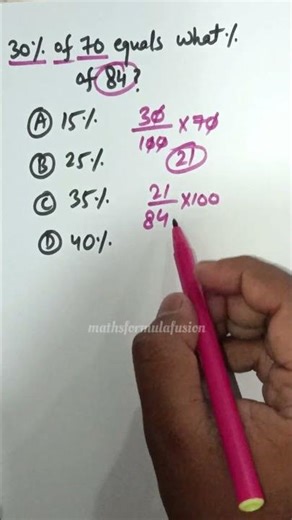 30% of 70 equals what %
of 84?
Ⓐ 15%
30/100 × 70
Ⓑ 25%
21
Ⓒ 35%
21/84 × 100
Ⓓ 40%
mathsformulafusion